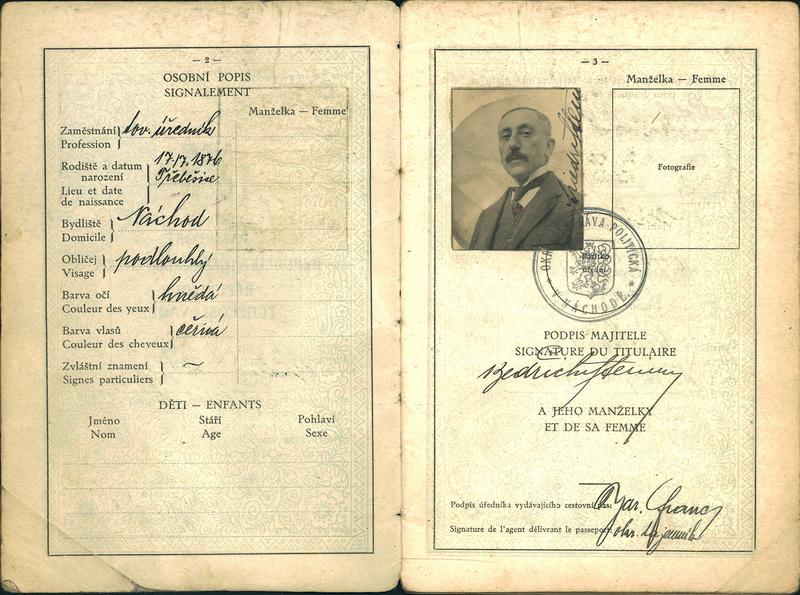 — 2 —
OSOBNÍ POPIS
SIGNALEMENT
Manželka — Femme
Zaměstnání tov. úředník
Profession
Rodiště a datum narození 17./7. 1876
Lieu et date de naissance Třebešice
Bydliště Náchod
Domicile
Obličej podlouhlý
Visage
Barva očí hnědá
Couleur des yeux
Barva vlasů černá
Couleur des cheveux
Zvláštní znamení ~
Signes particuliers
DĚTI — ENFANTS
Jméno Stáří Pohlaví
Nom Age Sexe
— 3 —
Manželka — Femme
Fotografie
SPRÁVA POLITICKÁ
V NÁCHODĚ
Razítko
úřední
PODPIS MAJITELE
SIGNATURE DU TITULAIRE
Bedřich
A JEHO MANŽELKY
ET DE SA FEMME
Podpis úředníka vydávajícího cestovní pas:
Signature de l'agent délivrant le passeport